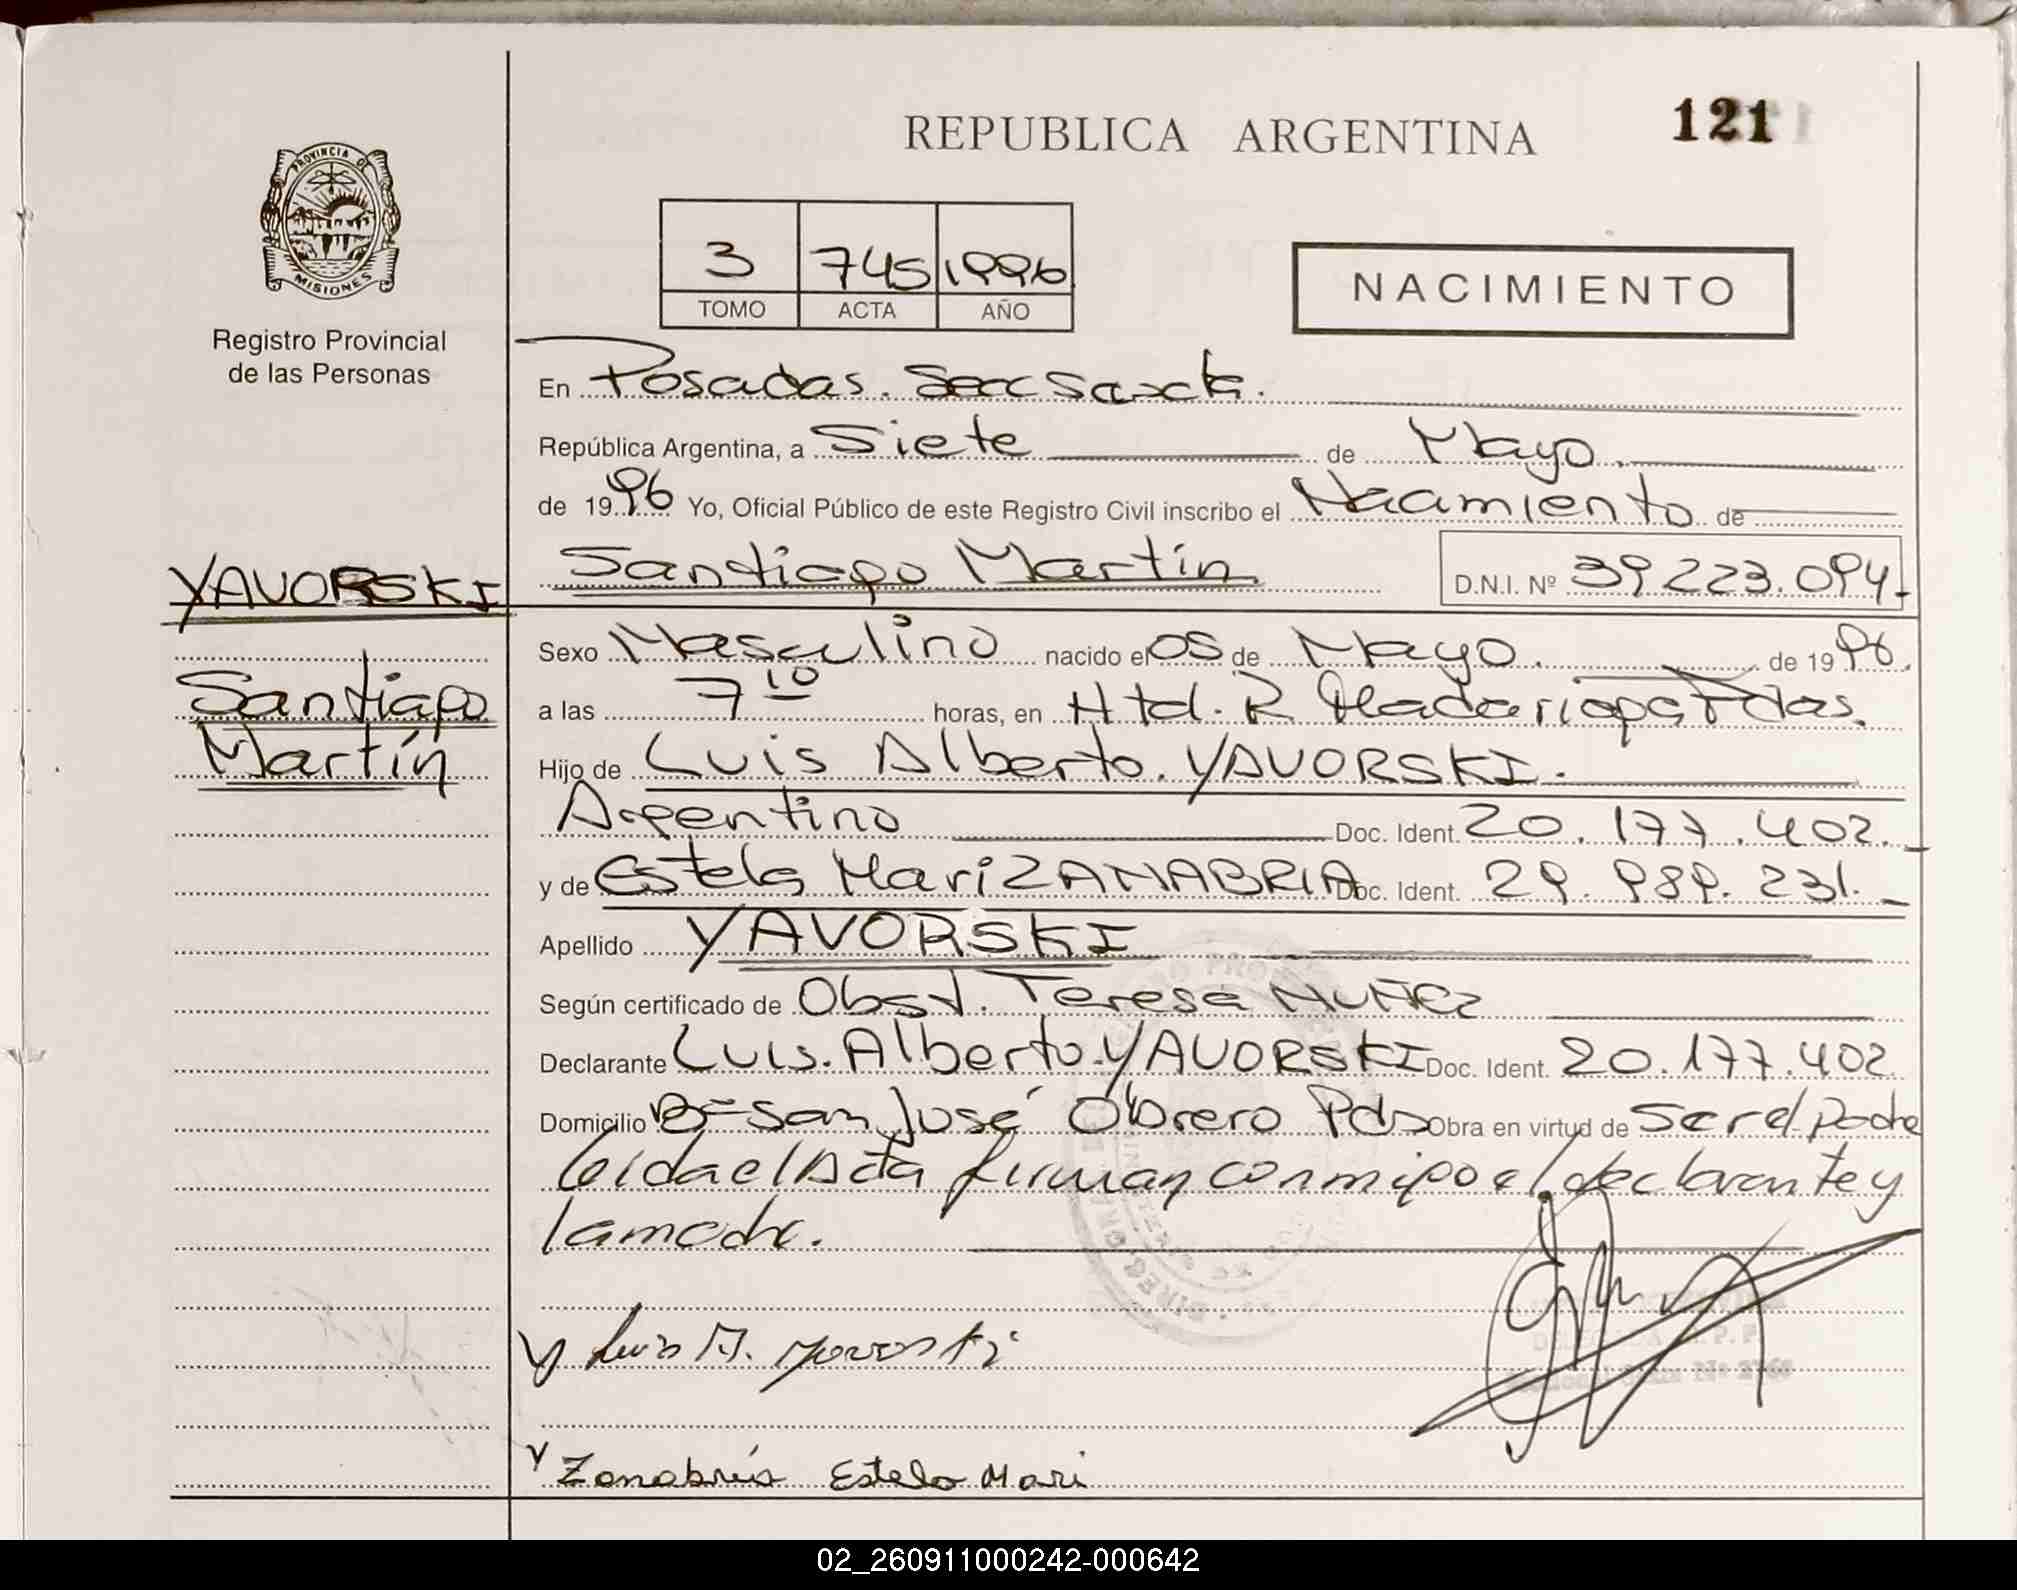 REPUBLICA ARGENTINA
121
PROVINCIA DE
MISIONES
Registro Provincial
de las Personas
3 745 1996
TOMO ACTA AÑO
NACIMIENTO
En Posadas. Secc Sexta.
República Argentina, a Siete de Mayo
de 1996 Yo, Oficial Público de este Registro Civil inscribo el Nacimiento de
Santiago Martín D.N.I. Nº 39.223.094
YAVORSKI
Santiago
Martín
Sexo Masculino nacido el 05 de Mayo de 1996.
a las 7 10 horas, en Htal. R Madariaga Pdas.
Hijo de Luis Alberto. YAVORSKI.
Argentino Doc. Ident. 20.177.402.
y de Estela Mari ZANABRIA Doc. Ident. 29.989.231.
Apellido YAVORSKI
Según certificado de Obst. Teresa MUÑEZ
Declarante Luis. Alberto YAVORSKI Doc. Ident. 20.177.402
Domicilio Bº San José Obrero Pdas Obra en virtud de Ser el padre
leida el Acta firman conmigo el declarante y
la madre.
Luis A. Yavorski
Zanabria Estela Mari
02_260911000242-000642